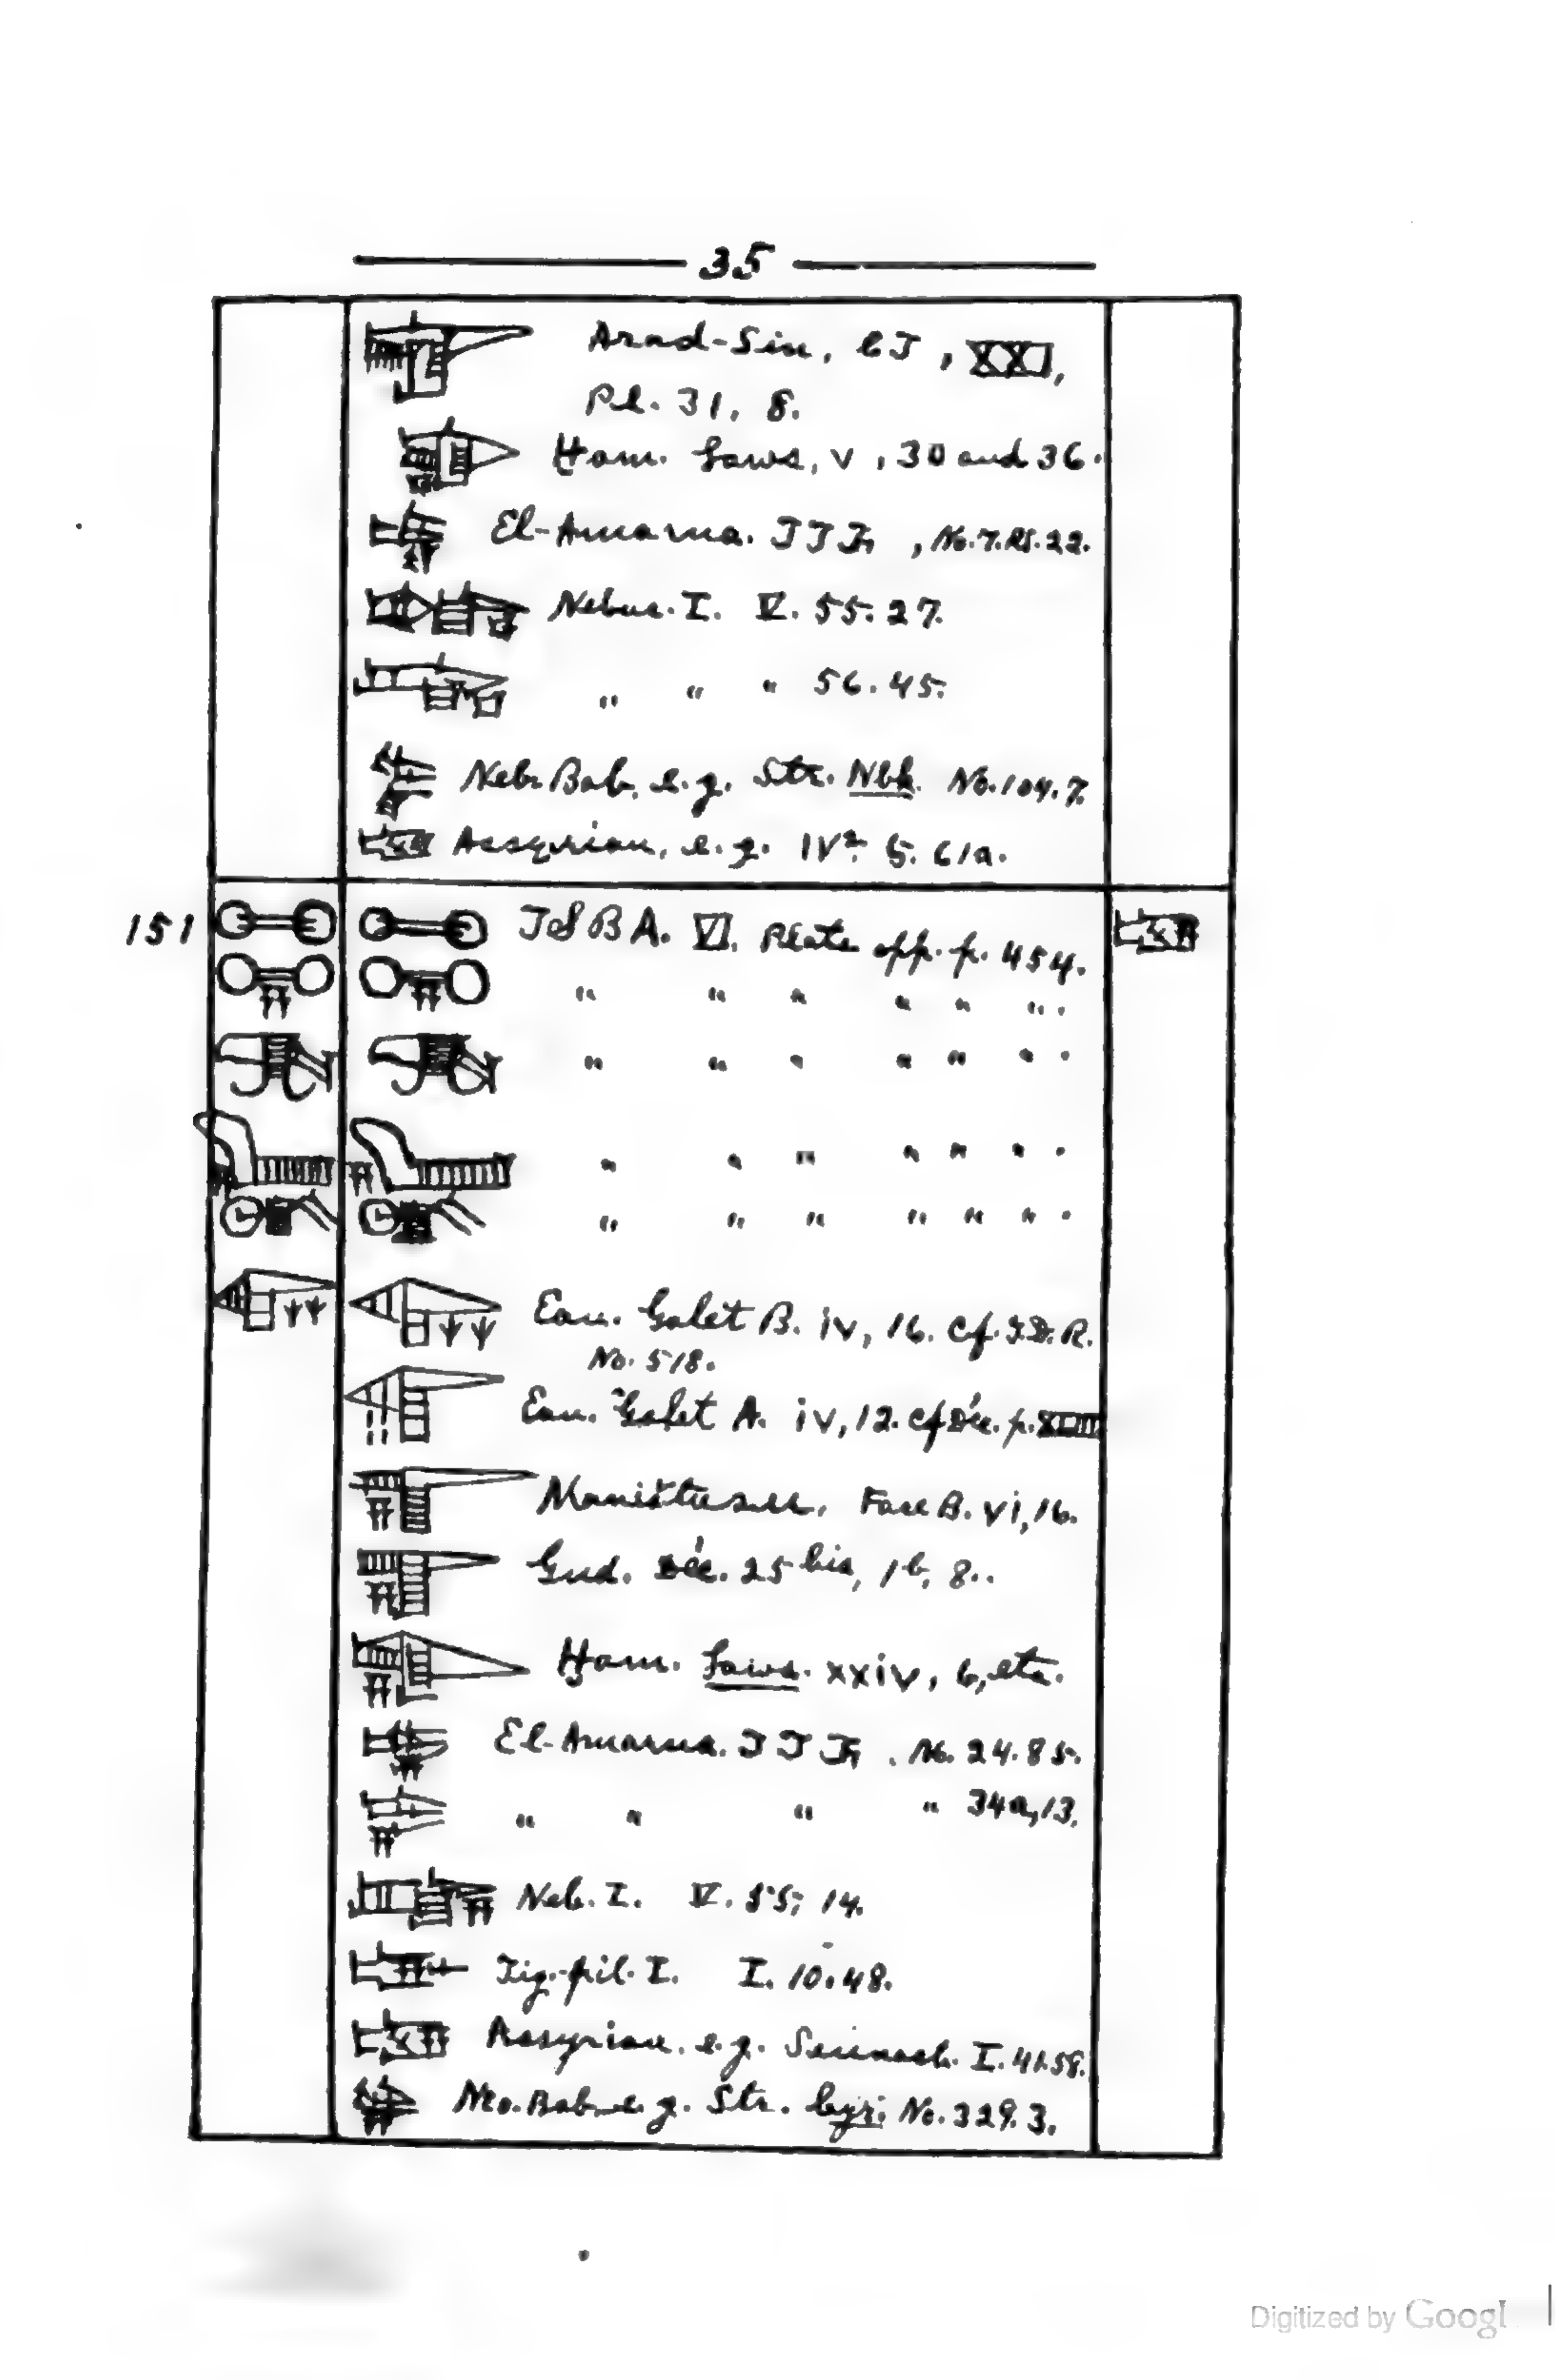 35
Arad-Sin, CT, XXI,
Pl. 31, 8.
Ham. Laws, v, 30 and 36.
El-Amarna. , No. 7. Rs. 22.
Nebuc. I. V. 55. 27.
" " " 56. 45.
Neb. Bab. e.g. Str. Nbk. No. 104. 7.
Assyrian, e.g. IV². 5. 61a.
151 TSBA. VI. Plate opp. p. 454.
" " " " " " .
" " " " " " .
" " " " " " .
" " " " " " .
Ean. Galet B. iv, 16. Cf. R.
No. 518.
Ean. Galet A. iv, 12. cf Déc. p.
Maništusu, Face B. vi, 16.
Gud. Déc. 25 bis, 1b, 8.
Ham. Laws. xxiv, 6, etc.
El-Amarna. . No. 24. 85.
" " " " 34a, 13.
Neb. I. V. 55, 14.
Tig.-pil. I. I. 10. 48.
Assyrian, e.g. Sennach. I. 41. 58.
Neo. Bab. e.g. Str. Cyr. No. 329. 3.
Digitized by Googl